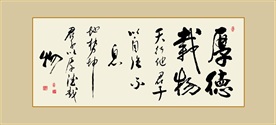 厚德
載物
天行健君子
以自強不
息
地勢坤
君子以厚德載
物